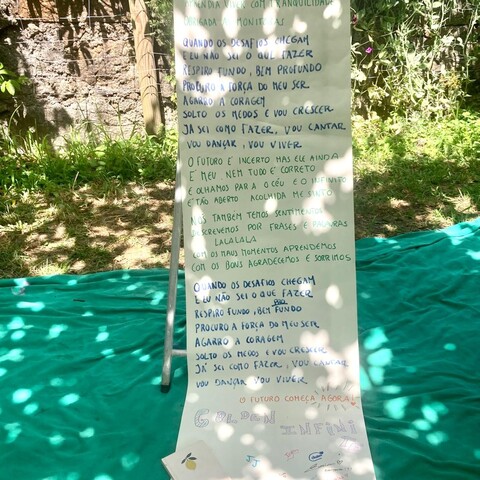 APRENDI A VIVER COM TRANQUILIDADE
OBRIGADA AS MONITORAS
QUANDO OS DESAFIOS CHEGAM
E EU NÃO SEI O QUE FAZER
RESPIRO FUNDO, BEM PROFUNDO
PROCURO A FORÇA DO MEU SER
AGARRO A CORAGEM
SOLTO OS MEDOS E VOU CRESCER
JÁ SEI COMO FAZER, VOU CANTAR
VOU DANÇAR, VOU VIVER
O FUTURO É INCERTO MAS ELE AINDA
É MEU NEM TUDO É CORRETO
E OLHAMOS PARA O CÉU E O INFINITO
É TÃO ABERTO ACOLHIDA ME SINTO
NÓS TAMBÉM TEMOS SENTIMENTOS
DESCREVEMOS POR FRASES E PALAVRAS
LALALALA
COM OS MAUS MOMENTOS APRENDEMOS
COM OS BONS AGRADECEMOS E SORRIMOS
QUANDO OS DESAFIOS CHEGAM
E EU NÃO SEI O QUE FAZER
RESPIRO FUNDO, BEM FUNDO
PROCURO A FORÇA DO MEU SER
AGARRO A CORAGEM
SOLTO OS MEDOS E VOU CRESCER
JÁ SEI COMO FAZER, VOU CANTAR
VOU DANÇAR VOU VIVER
O FUTURO COMEÇA AGORA!
GOLDEN INFINI